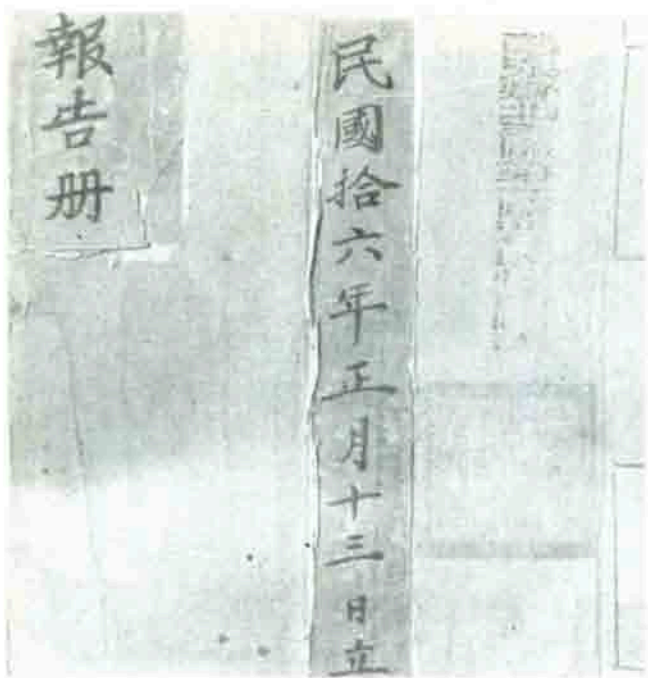 民國拾六年正月十三日立
報告册